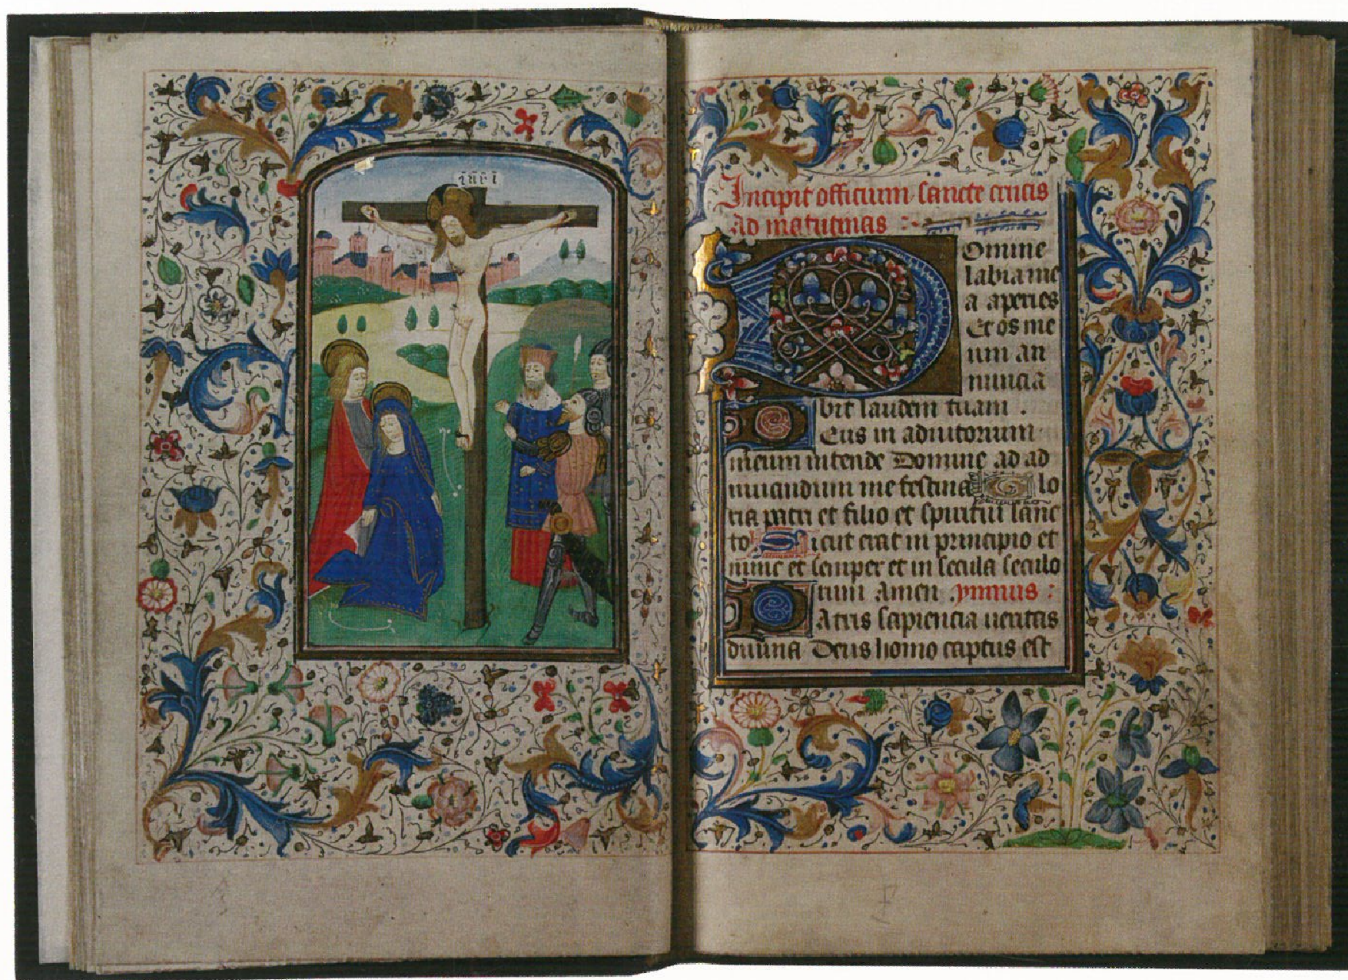 inri
Incipit officium sancte crucis
Ad matutinas :
Domine
labia me
a aperies
Et os me
um an
nuncia
bit laudem tuam .
Deus in adiutorium
meum intende Domine ad ad
iuuandum me festina Glo
ria patri et filio et spiritui sanc
to Sicut erat in principio et
nunc et semper et in secula seculo
rum Amen ymnus :
Patris sapiencia ueritas
diuina Deus homo captus est